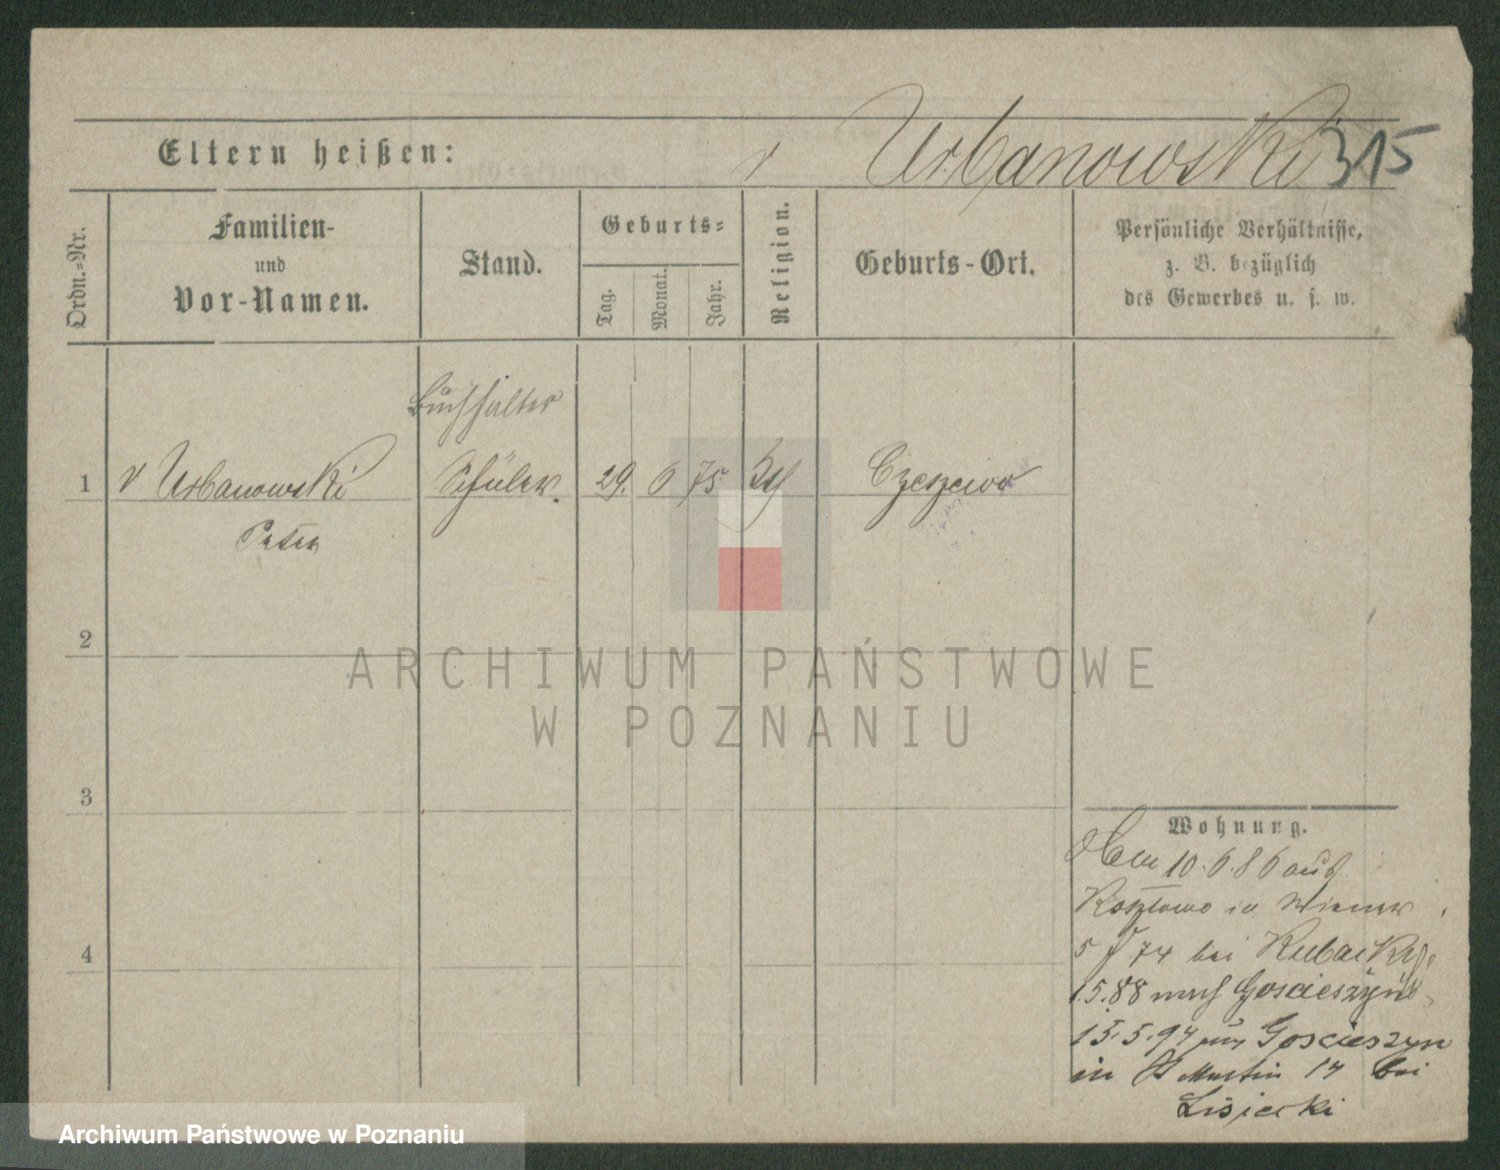 v Urbanowski 315
Eltern heißen:
Ordn.=Nr.
Familien-
und
Vor-Namen.
Stand.
Geburts=
Tag.
Monat.
Jahr.
Religion.
Geburts-Ort.
Persönliche Verhältnisse,
z. B. bezüglich
des Gewerbes u. s. w.
Buchhalter
1 v Urbanowski Schüler. 29. 6 75 Czeszewo
Peter
2
3
4
Wohnung.
10.6.86 aus
in
5 74 bei
1.5.88 nach
13.5.94 Goscieszyn
in St Martin 14 bei
Lisiecki
ARCHIWUM PAŃSTWOWE
W POZNANIU
Archiwum Państwowe w Poznaniu